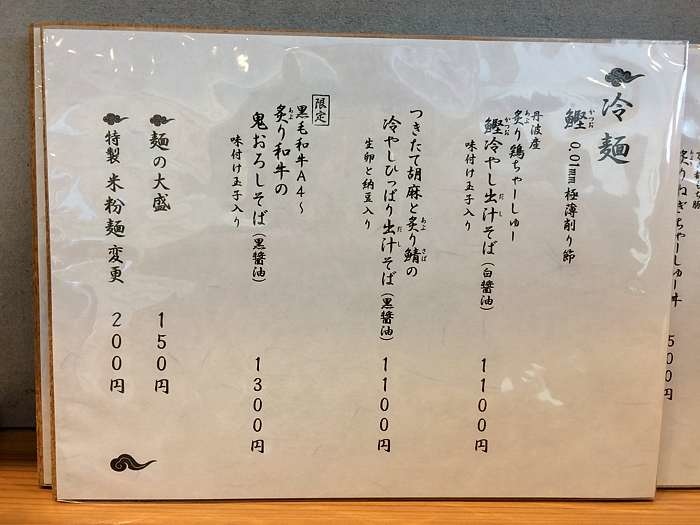 冷麺
鰹 0.01mm 極薄削り節
かつお
丹波産
炙り鶏ちゃーしゅー
あぶ
鰹冷やし出汁そば（白醤油）
かつお だし
味付け玉子入り
1100円
つきたて胡麻と炙り鯖の
あぶ さば
冷やしひっぱり出汁そば（黒醤油）
だし
生卵と納豆入り
1100円
限定
黒毛和牛A4〜
炙り和牛の
あぶ
鬼おろしそば（黒醤油）
味付け玉子入り
1300円
麺の大盛 150円
特製 米粉麺 変更 200円
炙りねぎちゃーしゅー丼
500円